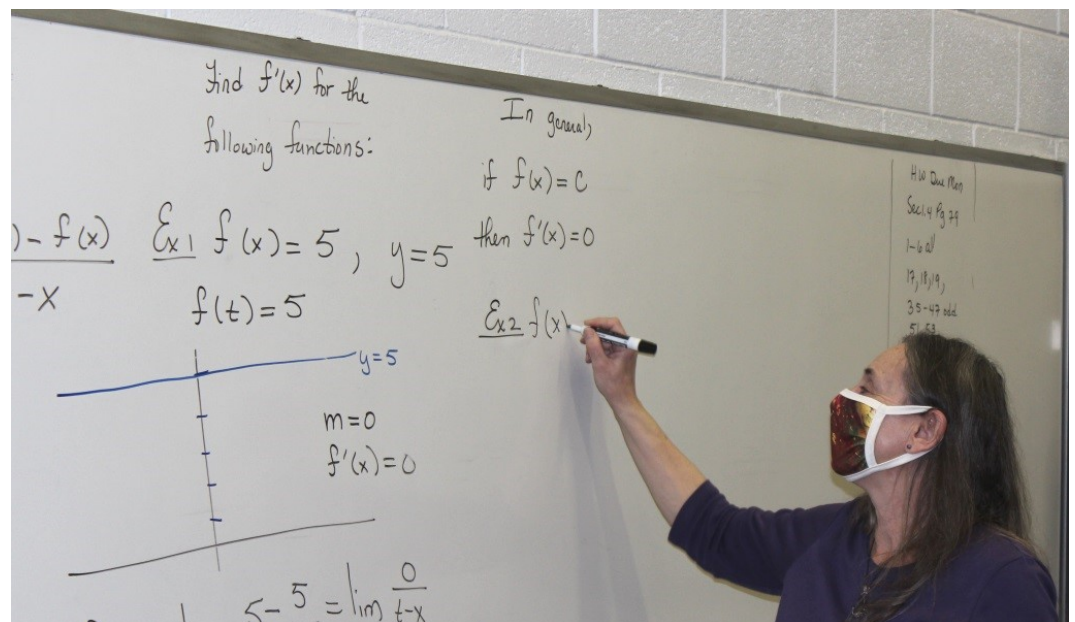 Find f'(x) for the
following functions:
) - f(x)
- x
Ex 1 f(x) = 5, y = 5
f(t) = 5
y = 5
m = 0
f'(x) = 0
5 - 5 = lim 0
t-x
In general,
if f(x) = C
then f'(x) = 0
Ex 2 f(x)
HW Due Mon
Sec 1.4 Pg 79
1-6 all
17, 18, 19,
35-47 odd
51-53